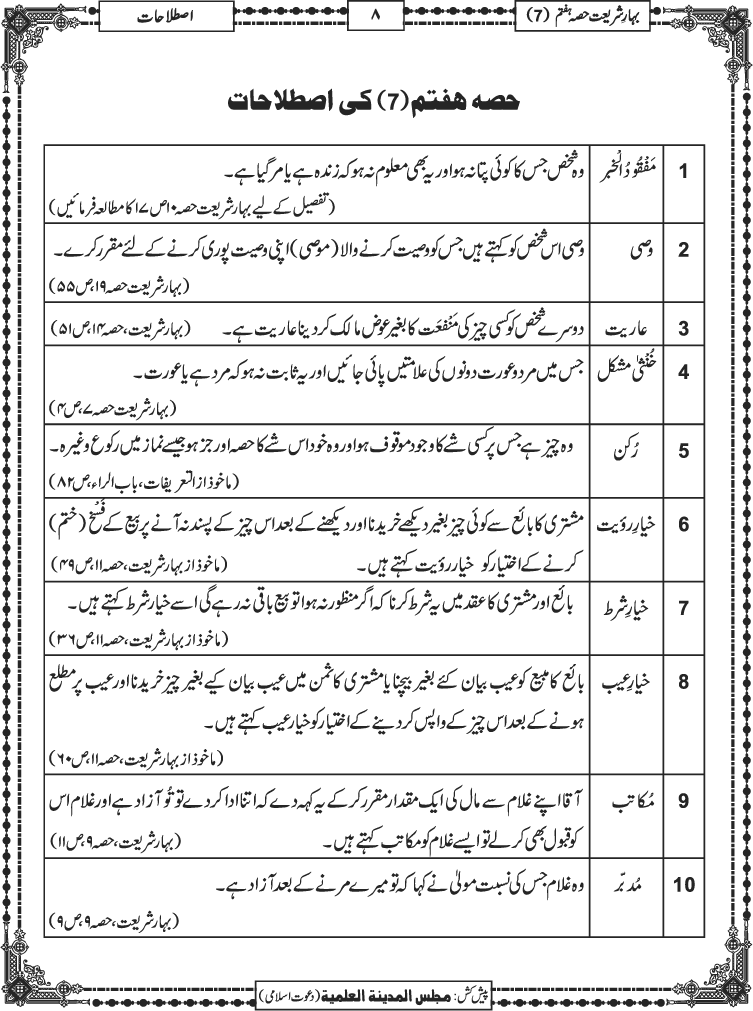 بہارِشریعت حصہ ہفتم (7)
۸
اصطلاحات
حصہ ھفتم(7) کی اصطلاحات
1
مَفْقُودُ الْخبر
وہ شخص جس کا کوئی پتا نہ ہو اور یہ بھی معلوم نہ ہو کہ زندہ ہے یا مر گیا ہے۔
(تفصیل کے لیے بہارِ شریعت حصہ ۱۰ ص ۱۷ کا مطالعہ فرمائیں)
2
وصی
وصی اس شخص کو کہتے ہیں جس کو وصیت کرنے والا (موصی) اپنی وصیت پوری کرنے کے لئے مقرر کرے۔
(بہارِ شریعت حصہ ۱۹، ص ۵۵)
3
عاریت
دوسرے شخص کو کسی چیز کی مَنْفَعَت کا بغیر عوض مالک کر دینا عاریت ہے۔ (بہارِ شریعت، حصہ ۱۴، ص ۵۱)
4
خُنْثٰی مشکل
جس میں مرد و عورت دونوں کی علامتیں پائی جائیں اور یہ ثابت نہ ہو کہ مرد ہے یا عورت۔
(بہارِ شریعت حصہ ۷، ص ۴)
5
رُکن
وہ چیز ہے جس پر کسی شے کا وجود موقوف ہو اور وہ خود اس شے کا حصہ اور جز ہو جیسے نماز میں رکوع وغیرہ۔
(ماخوذ از التعریفات، باب الراء، ص ۸۲)
6
خیارِ رؤیت
مشتری کا بائع سے کوئی چیز بغیر دیکھے خریدنا اور دیکھنے کے بعد اس چیز کے پسند نہ آنے پر بیع کے فَسْخ (ختم)
کرنے کے اختیار کو خیار رؤیت کہتے ہیں۔ (ماخوذ از بہارِ شریعت، حصہ ۱۱، ص ۴۹)
7
خیارِ شرط
بائع اور مشتری کا عقد میں یہ شرط کرنا کہ اگر منظور نہ ہوا تو بیع باقی نہ رہے گی اسے خیار شرط کہتے ہیں۔
(ماخوذ از بہارِ شریعت، حصہ ۱۱، ص ۳۶)
8
خیارِ عیب
بائع کا مبیع کو عیب بیان کئے بغیر بیچنا یا مشتری کا ثمن میں عیب بیان کیے بغیر چیز خریدنا اور عیب پر مطلع
ہونے کے بعد اس چیز کے واپس کر دینے کے اختیار کو خیار عیب کہتے ہیں۔
(ماخوذ از بہارِ شریعت، حصہ ۱۱، ص ۶۰)
9
مُکاتب
آقا اپنے غلام سے مال کی ایک مقدار مقرر کر کے یہ کہہ دے کہ اتنا ادا کر دے تو تُو آزاد ہے اور غلام اس
کو قبول بھی کر لے تو ایسے غلام کو مکاتب کہتے ہیں۔ (بہارِ شریعت، حصہ ۹، ص ۱۱)
10
مُدبّر
وہ غلام جس کی نسبت مولیٰ نے کہا کہ تو میرے مرنے کے بعد آزاد ہے۔
(بہارِ شریعت، حصہ ۹، ص ۹)
پیش کش: مجلس المدینة العلمیة (دعوت اسلامی)